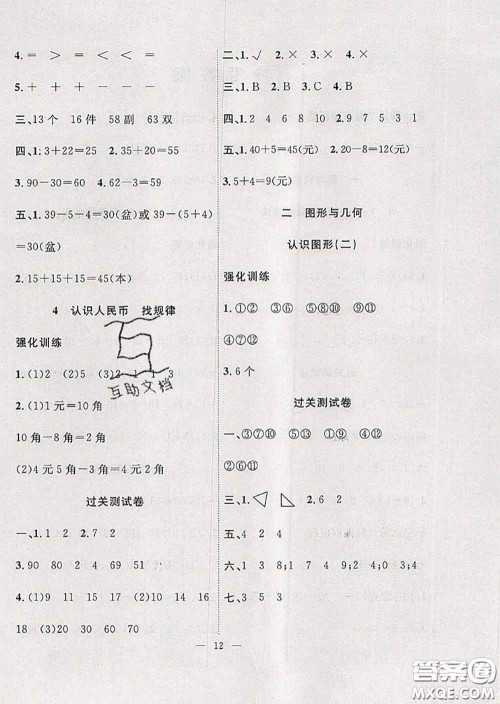 4.=　=　>　<　=　=
5.+　+　+　－　－　－
三、13个　16件　58副　63双
四、1.3+22=25　2.35+20=55
3.90-30=60　4.62-3=59
五、1.39-5-4=30(盆)或39-(5+4)
=30(盆)
2.15+15+15=45(本)
4　认识人民币　找规律
强化训练
1.(1)2　(2)5　(3)2　1　1　3
2.(1)1元=10角
10角-8角=2角
(2)4元5角-4元=5角
过关测试卷
一、1.2　2.7　2
3.90　80　2　74　69　51
4.(1)9　11　15　17　(2)10　14　16
18　(3)20　30　60　70
二、1.√　2.×　3.×　4.×
三、1.B　2.C　3.C　4.B
四、1.2　4　6　8　2.9　7　5　3　1
五、1.40+5=45(元)　2.20-8=12(元)
3.5+4=9(元)
二　图形与几何
认识图形(二)
强化训练
1.①②　③⑥　⑤⑧⑨⑪
④⑦⑫
3.6个
过关测试卷
一、③⑦⑩　⑤⑨⑬　①④⑫
②⑥⑧⑪
三、1.　2.6　2
五、4　2　4
六、1　3　8;4　7　9;2　5　6
七、3　5　3
12
互助文档
答案圈
MXQE.COM